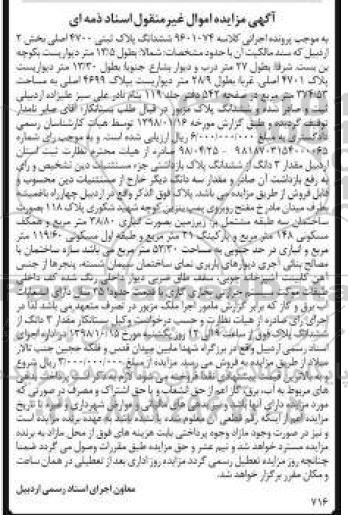 آگهی مزایده اموال غیر منقول اسناد ذمه ای
به موجب پرونده اجرائی کلاسه ۹۶۰۱۰۷۴ ششدانگ پلاک ثبتی ۴۷۰۰ اصلی بخش ۲
اردبیل که سند مالکیت آن با حدود مشخصات: شمالا بطول ۱۳/۵ متر دیواریست بکوچه
بن بست. شرقا بطول ۲۷ متر درب و دیوار بشارع جنوبا بطول ۱۳/۳۰ متر دیواریست
پلاک ۴۷۰۱ اصلی غربا بطول ۲۸/۹ متر دیواریست بپلاک ۴۶۹۹ اصلی به مساحت
۳۷۴/۵۳ متر مربع در صفحه ۵۴۳ دفتر جلد ۱۱۹ بنام نادر علی سبز علیزاده اردبیلی
ششدانگ پلاک مزبور در قبال طلب بستانکار آقای صابر نامدار
توقیف گردیده و طبق گزارش مورخه ۱۳۹۸/۰۱/۱۶ توسط هیات کارشناسان رسمی
ریال ارزیابی شده است. و به موجب رای شماره
صادره از هیات محترم نظارت ثبت استان
اردبیل مقدار ۳ دانگ از ششدانگ پلاک بازداشتی جزء مستثنیات دین تشخیص و رای
به رفع بازداشت آن صادر و مقدار سه دانگ دیگر خارج از مستثنیات دین محسوب و
قابل فروش از طریق مزایده می باشد. پلاک فوق الذکر واقع در اردبیل چهارراه باغمیشه
کوچه شهید شکوری پلاک ۱۱۸ بصورت
ساختمان سه طبقه مشتمل بر: زیرزمین بصورت انباری ۳۸/۸۰ متر مربع و همکف
مسکونی ۱۴۸ متر مربع و پارکینگ ۳۰ متر مربع و طبقه اول مسکونی ۱۱۹/۶۰ متر
مربع و انباری در حد جنوبی به مساحت ۵۳/۳۰ متر مربع می باشد سازه ساختمان با
مصالح بنائی آجری دیوارهای باربری نمای ساختمان سیمان شسته، پنجره ها از جنس
گاز کشی با قدمت حدود ۳۵ سال دارای انشعابات
آب برق و گاز که برابر گزارش مامور اجرا ملک مزبور در تصرف متعهد می باشد لذا در
اجرای رای صادره از هیات نظارت و حسب درخواست وکیل بستانکار مقدار ۳ دانگ از
ششدانگ پلاک فوق از ساعت ۹ الی ۱۲ روز یکشنبه مورخ ۱۳۹۸/۱۰/۱۵ در اداره اجرای
اسناد رسمی اردبیل واقع در بزرگراه شهدا مابین میدان قدس و فلکه ججین جنب تالار
میلاد از طریق مزایده به فروش می رسد. مزایده از مبلغ ۳/۰۰۰/۰۰۰/۰۰۰ ریال شروع
نقدا فروخته می شود. لازم به ذکر است پرداخت بدهی
های مربوط به آب، برق، گاز اعم از حق انشعاب و یا حق اشتراک و مصرف در صورتی که
مورد مزایده دارای آنها باشد و نیز بدهی های مالیاتی و عوارض شهرداری و غیره تا تاریخ
مزایده اعم از اینکه رقم قطعی آن معلوم شده یا نشده باشد به عهده برنده مزایده است
و نیز در صورت وجود مازاد وجوه پرداختی بابت هزینه های فوق از محل مازاد به برنده
مزایده مسترد خواهد شد و نیم عشر و حق مزایده طبق مقررات وصول می گردد ضمنا
چنانچه روز مزایده تعطیل رسمی گردد مزایده روز اداری بعد از تعطیلی در همان ساعت
و مکان مقرر برگزار خواهد شد.
معاون اجرای اسناد رسمی اردبیل
۷۱۶